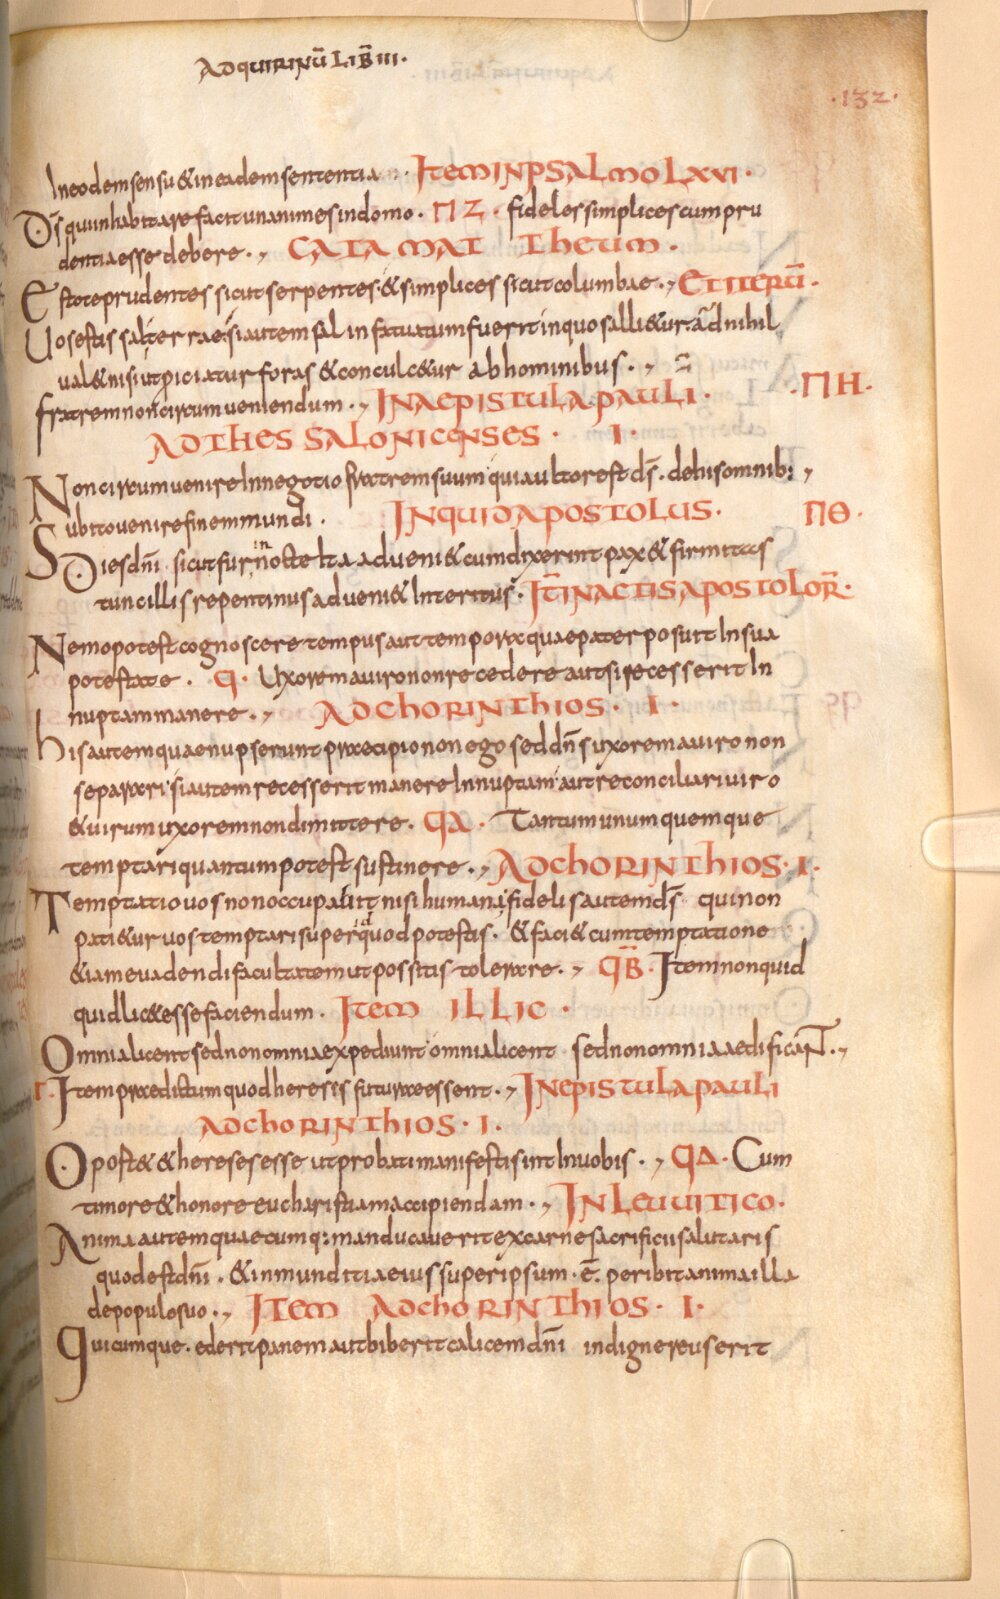 ADQUIRINŪ LIB̄ III·
·132·
In eodem sensu & in eadem sententia · ITEM IN PSALMO LXVI·
D̄s qui inhabitare facit unanimes in domo · ΠΖ · fideles simplices cum pru
dentia esse debere · CATA MATTHEUM ·
Estote prudentes sicut serpentes · & simplices sicut columbae · ET ITERŪ ·
Uos estis sal terrae · si autem sal infatuatum fuerit in quo salli&ur · ad nihil
ual& nisi ut piciatur foras & conculc&ur ab hominibus ·
·ΠΗ·
fratrem non circumueniendum · IN AEPISTULA PAULI ·
AD THESSALONICENSES · I ·
Non circumuenire In negotio fratrem suum quia ultor est d̄s · de his omnib;
Subito uenire finem mundi · INQUID APOSTOLUS · ΠΘ ·
Dies dn̄i · sicut fur in nocte Ita adueni& cum dixerint pax & firmitas
tunc illis repentinus adueni& Interitus · IT̄ IN ACTIS APOSTOLOR̄ ·
Nemo potest cognoscere tempus aut tempora quae pater posuit In sua
potestate · Ϥ · Uxorem a uiro non recedere aut si recesserit In
nuptam manere · AD CHORINTHIOS · I ·
his autem quae nupserunt praecipio non ego sed dn̄s uxorem a uiro non
separari · si autem recesserit manere Innuptam aut reconciliari uiro
& uirum uxorem non dimittere · ϤΑ · Tantum unum quemque
temptari quantum potest sustinere · AD CHORINTHIOS · I ·
Temptatio uos non occupabit nisi humana · fidelis autem d̄s qui non
pati&ur uos temptari super id quod potestis · & faci& cum temptatione
&iam euadendi facultatem ut possitis tolerare · ϤΒ · Item non quid
quid lic& esse faciendum · ITEM ILLIC ·
Omnia licent sed non omnia expediunt omnia licent sed non omnia aedificant ·
Γ · Item praedictum quod hereses futurae essent · IN EPISTULA PAULI
AD CHORINTHIOS · I ·
Oport& & hereses esse ut probati manifesti sint In uobis · ϤΔ · Cum
timore & honore eucharistiam accipiendam · IN LEUUITICO ·
Anima autem quaecumq; manducauerit ex carne sacrificii salutaris
quod est dn̄i · & inmunditia eius super ipsum · ē · peribit anima illa
de populo suo · ITEM AD CHORINTHIOS · I ·
Quicumque · ederit panem aut biberit calicem dn̄i indigne reus erit